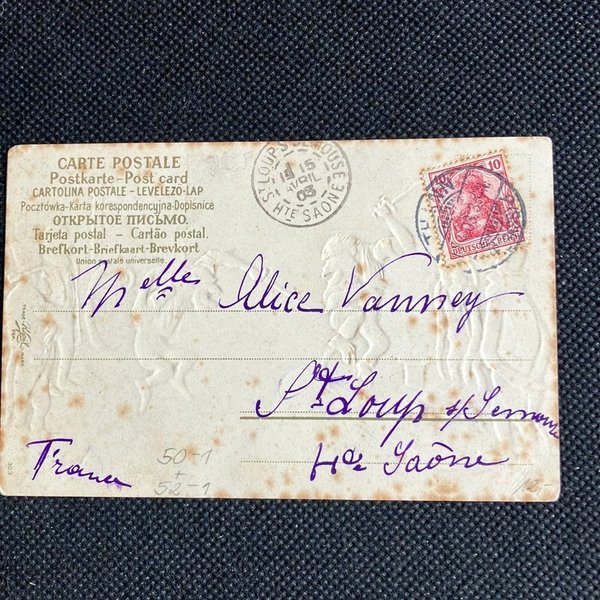 CARTE POSTALE
Postkarte-Post card
CARTOLINA POSTALE-LEVELEZO-LAP
Pocztówka-Karta korespondencyjna-Dopisnice
ОТКРЫТОЕ ПИСЬМО.
Tarjeta postal - Cartão postal.
Brefkort-Briefkaart-Brevkort.
Union postale universelle.
15
AVRIL
03
Hte SAÔNE
10
DEUTSCHES REICH
Melles Alice Vanney
St Loup s/
Hte Saône
France
50-1
+
52-1